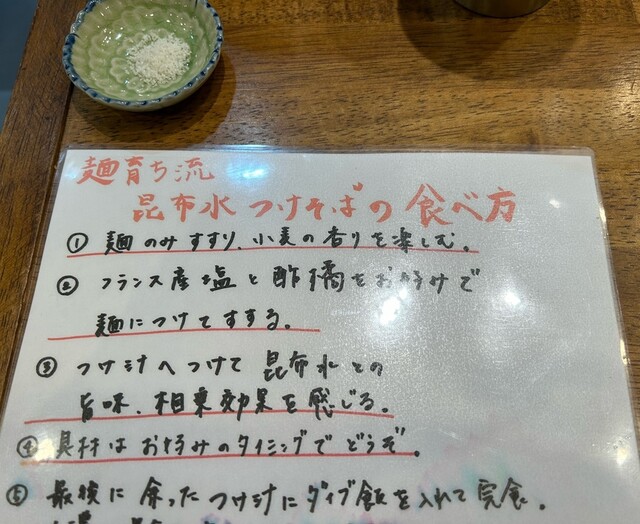 麺育ち流
昆布水つけそばの食べ方
① 麺のみすすり、小麦の香りを楽しむ。
② フランス産塩と酢橘をお好みで
麺につけてすする。
③ つけ汁へつけて昆布水との
旨味、相乗効果を感じる。
④ 具材はお好みのタイミングでどうぞ。
⑤ 最後に余ったつけ汁にダイブ飯を入れて完食。